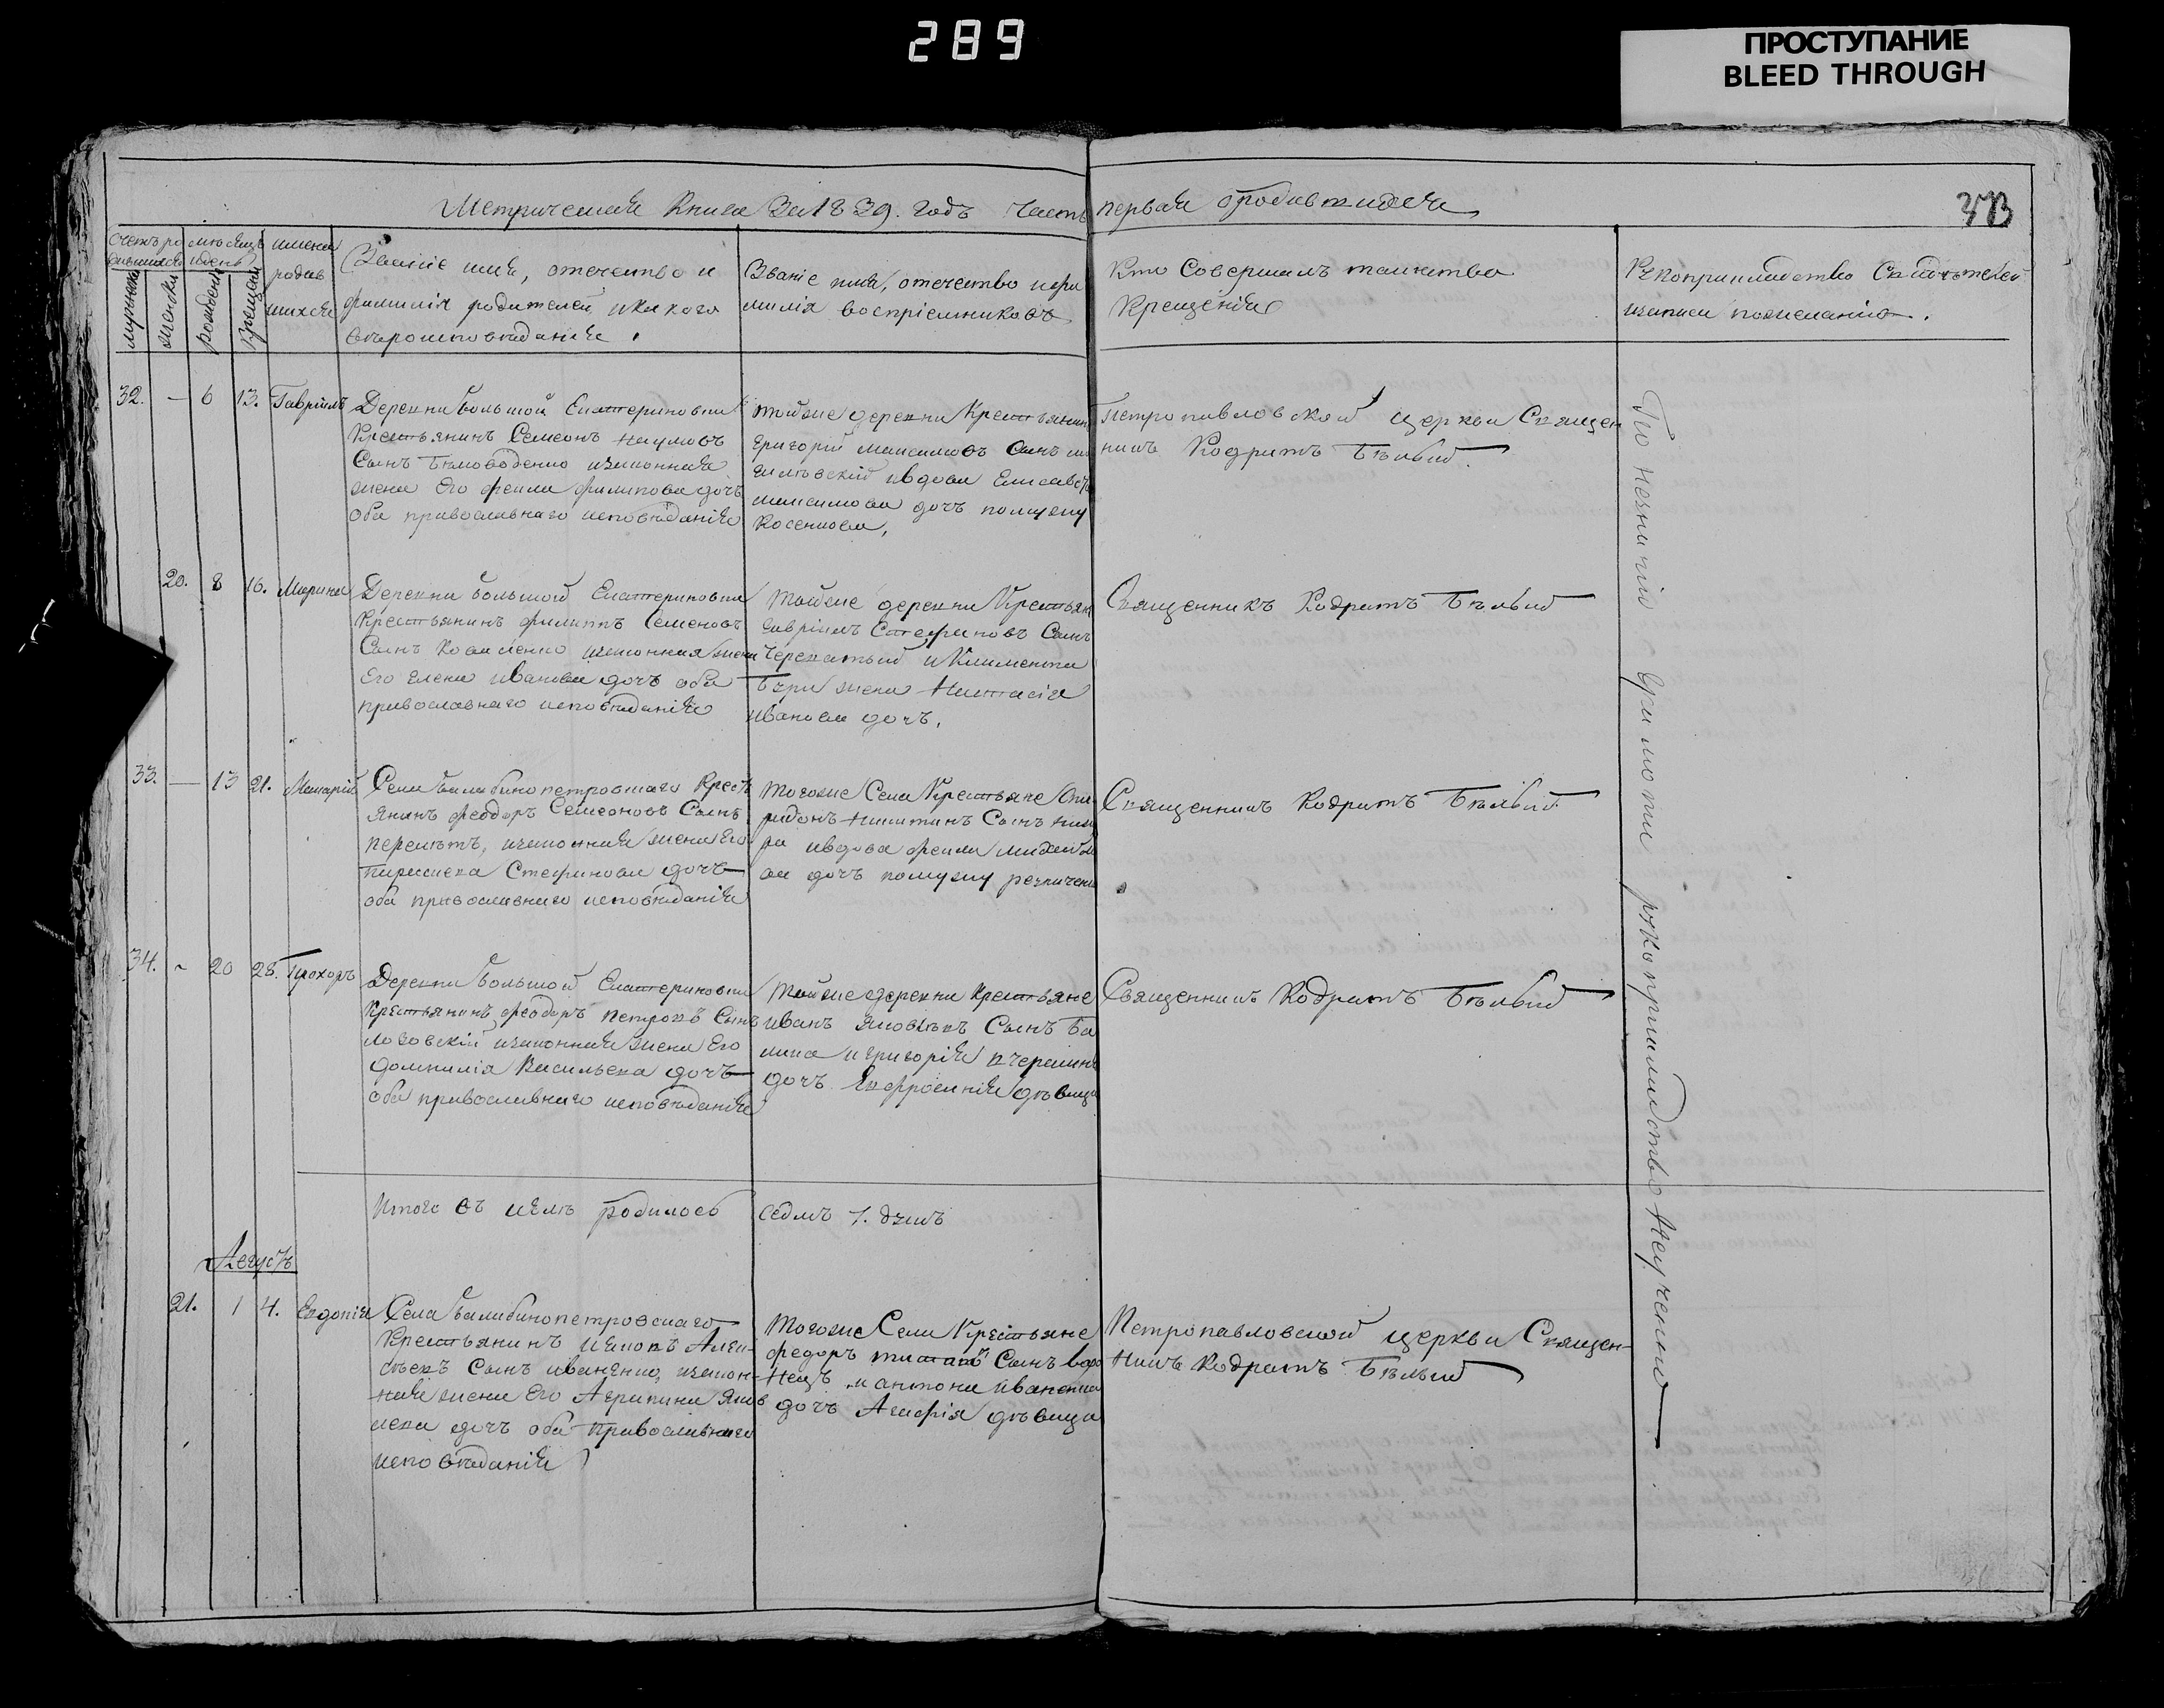 289
ПРОСТУПАНИЕ
BLEED THROUGH
Метрическая Книга За 1839. годъ Часть первая о родившихся
373
счетъ ро
дившихся
мужеска
женски
мѣсяцъ
и день
рожденія
крещенія
имена
родив
шихся
Званіе имя, отечество и
фамилія родителей и какого
вѣроисповѣданія
Званіе имя, отечество и фа
милія воспріемниковъ
Кто Совершалъ таинство
Крещенія
Рукоприкладство Свидѣтелей
записи по желанію.
32. — 6 13. Гавріилъ
Деревни большой Екатериновки
Крестьянинъ Семеонъ Наумовъ
Сынъ Бѣловоденко изаконная
жена Его Фекла Филипова дочь
Оба православнаго исповѣданія
тойже деревни Крестьянинъ
Григорій Максимовъ Сынъ
ивдова Елисавета
Максимова дочь помужу
Косенкова,
Петропавловской церкви Священ
никъ Кодратъ Бѣлый.
20. 8 16. Марина
Деревни большой Екатериновки
Крестьянинъ Филиппъ Семеновъ
Сынъ Коваленко изаконная жена
Его Елена Иванова дочь оба
православнаго исповѣданія
тойже деревни Крестьян
Гавріилъ Стефановъ Сынъ
Черекатый и Климента
жена Настасія
Иванова дочь,
Священникъ Кодратъ Бѣлый
33. — 13 21. Макарій
Села балабинопетровкаго Крест
янинъ Феодоръ Семеоновъ Сынъ
изаконная жена Его
Параскева Стефанова дочь
оба православнаго исповѣданія
тогоже Села Крестьяне Спи
ридонъ Никитинъ Сынъ
ра ивдова Фекла Михайло
ва дочь помужу
Священникъ Кодратъ Бѣлый
34. ~ 20 28. Прохоръ
Деревни большой Екатериновки
Крестьянинъ Феодоръ Петровъ Сынъ
изаконная жена Его
Домникія Васильева дочь
оба православнаго исповѣданія
тойже деревни Крестьяне
Иванъ Яковлевъ Сынъ Ба
и Григорія
дочь Евфросинія дѣвица
Священникъ Кодратъ Бѣлый
Итого въ родилось седмъ 7. душъ
Августъ
21. 1 4. Евдокія
Села балабинопетровскаго
Крестьянинъ Алек-
сѣевъ Сынъ Иваненко, изакон-
ная жена Его Агрипина Яков
лева дочь оба православнаго
исповѣданія
тогоже Села Крестьяне
Федоръ Сынъ Воро
нецъ и антона Иваненка
дочь Агафія дѣвица
Петропавловской церкви Священ-
никъ Кодратъ Бѣлый
По незнанію Грамоты рукоприкладство Неучинено